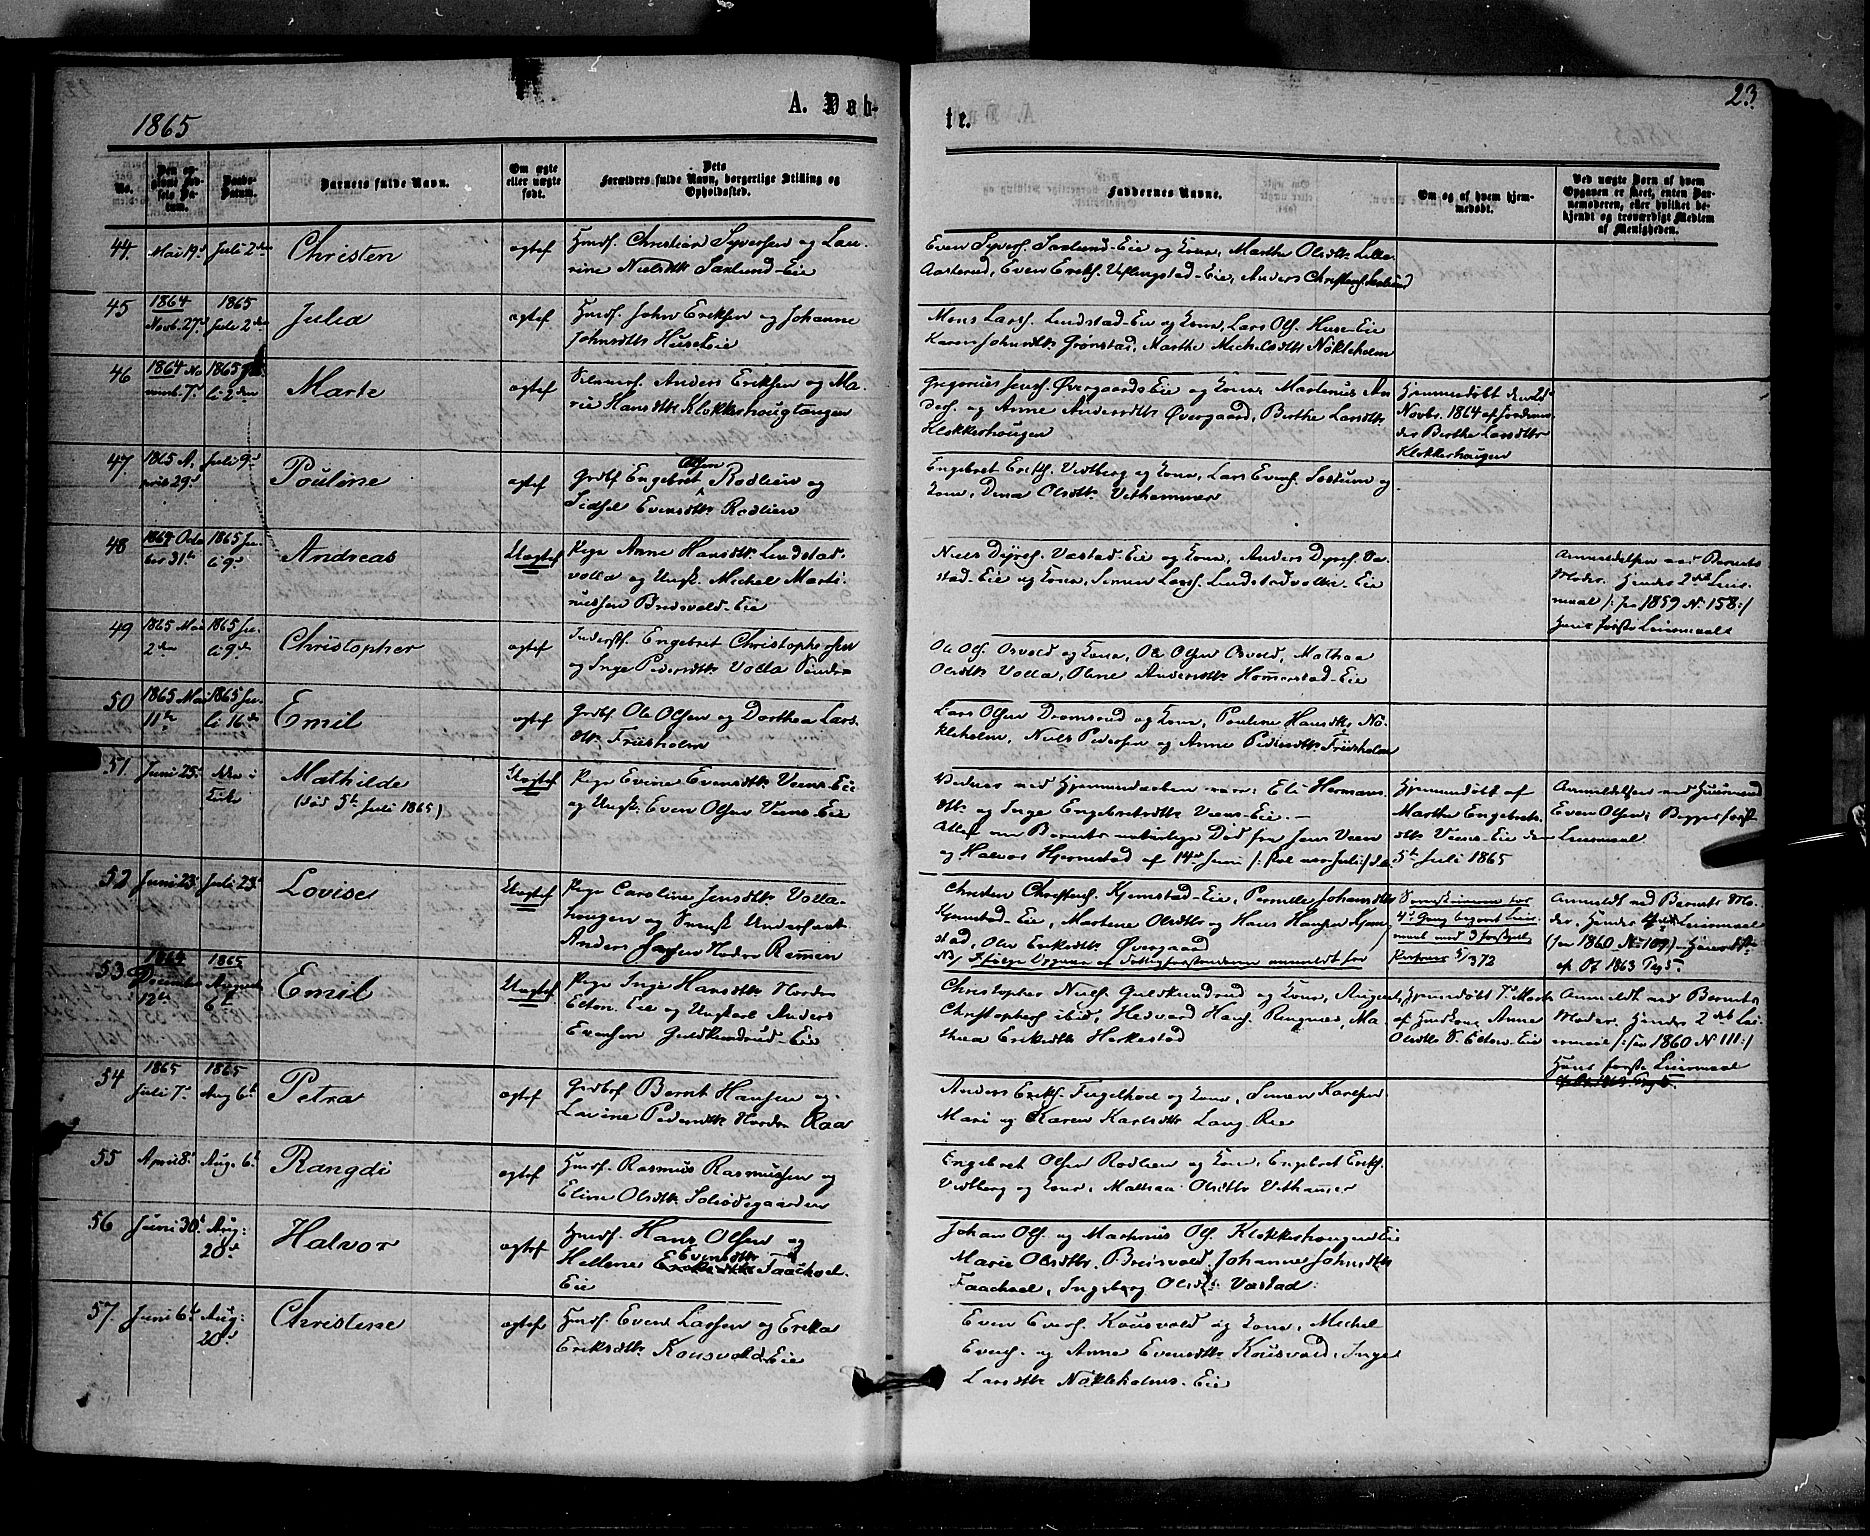 1865
A. Døb-
te.
23.
No.
Den op-
givne Fød-
sels Da-
tum.
Daabs-
Datum.
Barnets fulde Navn.
Om ægte
eller uægte
født.
Dets
Forældres fulde Navn, borgerlige Stilling og
Opholdssted.
Faddernes Navne.
Om og af hvem hjem-
medøbt.
Ved uægte Børn af hvem
Opgaven er skeet, enten Bar-
nemoderen, eller hvilket be-
kjendt og troværdigt Medlem
af Menigheden.
44. Mai 19d Juli 2den Christen ægtef Husm. Christian Syversen og Lau-
rine Nielsdtr Sælund-Eie
Even Syvers. Sælund-Eie og Kone, Marthe Olsdtr Lille-
Aaserud, Even Eriks. Uflingstad-Eie, Anders Christens. Sælund
45 1864 Novb. 27d 1865 Juli 2den Julia ægtef Husm. John Eriksen og Johanne
Johnsdtr Huse-Eie
Mons Lars. Lundstad-Eie og Kone, Lars Ols. Huse-Eie
Karen Johnsdtr Grønstad, Marthe Michelsdtr Nökleholm
46 1864 No-
vemb. 7d 1865 Ju-
li 2den Marte ægtef Anders Eriksen og Ma-
rie Hansdtr Klokkerhougtangen
Gregorius Jens. Øvergaards Eie og Kone, Martenius An-
ders. og Anne Andersdtr Øvergaard, Berthe Larsdtr
Klokkerhougen
Hjemmedøbt den
Novbr. 1864 af Jordemo-
der Berthe Larsdtr
Klokkerhaugen
47. 1865 A-
pril 29d Juli 9d Pouline ægtef Grdbr Engebret Olsen Rodlien og
Sidsel Evensdtr Rodlien
Engebret Eriks. Vidtberg og Kone, Lars Evens. og
Kone, Dina Olsdtr Vithammer
48 1864 Octo-
ber 31te 1865 Ju-
li 9d Andreas Uægtef Pige Anne Hansdtr Lundstad-
volla og Ungk. Michel Marti-
niussen Bredsvold-Eie
Niels Dyres. Vastad-Eie og Kone, Anders Dyres. Va-
stad-Eie og Kone, Simen Lars. Lundstadvolla-Eie
Anmeldelsen ved Barnets
Moder. Hendes 2det Leier-
maal /: fra 1859 N. 158:/
Hans første Leiermaal
49 1865 Mai
2den 1865 Ju-
li 9de Christopher ægtef Inderst. Engebret Christophersen
og Inge Pedersdtr Volla Søndre
Ole Ols. Osvold og Kone, Ole Olsen Osvold, Mathea
Olsdtr Volla, Oline Andersdtr Homerstad-Eie
50 1865 Mai
11te 1865 Ju-
li 16de Emil ægtef Grdbr Ole Olsen og Dorthea Lars-
dtr Friisholm
Lars Olsen Dromsrud og Kone, Pouline Hansdtr Nö-
kleholm, Niels Pedersen og Anne Pedersdtr Friisholm
51. Juni 25d Mathilde
(död 5te Juli 1865)
Uægtef Pige Evine Evensdtr Veens-Eie
og Ungk. Even Olsen Veens-Eie
Vidner ved Hjemmedaaben var: Eli Hermans-
dtr og Inge Engebretsdtr Veens-Eie.-
Attest om Barnets naturlige Død fra Jens Veen
og Halvor Hjermstad af 14de Juni /: skal være Juli:/ d.A.
Hjemmedøbt af
Marthe Engebrets-
dtr Veens-Eie den
5te Juli 1865
Anmeldelsen ved Huusmand
Even Olsen; Begges første
Leiermaal
52 Juni 23d Juli 23d Lovise Uægtef Pige Caroline Jensdtr Volla-
hougen og Svensk Undersaat
Anders Nordre Remmen
Christen Christens. Kjernstad-Eie, Pernille Johannsdtr
Kjernstad-Eie, Martene Olsdtr og Hans Hansen Kjern-
stad, Oline Eriksdtr Øvergaard
NB/ Ifølge Opgave af Fattigforstanderne anmeldt for
4de Gang begaaet Leier-
maal med 3 forskjel.
Anmeldt ved Barnets Mo-
der. Hendes 4de Leiermaal
(fra 1860 No 109)
53 1864
December
12te 1865
August
6te Emil Uægtef Pige Inge Hansdtr Nordre
Elton-Eie og Ungkarl Anders
Evensen Guldkundrud-Eie
Christopher Niels. Guldkundrud og Kone, August
Christophers. ibid, Hedvard Hans. Ringnes, Ma-
thea Eriksdtr Herkestad
Hjemmedøbt
af Huskone Anne
Olsdtr S. Elton-Eie
Anmeldt ved Barnets
Moder. Hendes 2det Lei-
ermaal /: fra 1860 N. 111:/
Hans første Leiermaal
54 1865
Juli 7d 1865
Aug 6te Petra ægtef Grdbr Bernt Hansen og
Lovine Pedersdtr Nordre Raa
Anders Eriks. Fugelhoel og Kone, Simen Karlsen
Mari og Karen Karlsdtr Laug Rie
55 April 8d Aug. 6te Rangdi ægtef Husm. Rasmus Rasmussen og
Eline Olsdtr
Engebret Olsen Rodlien og Kone, Engebret Eriks.
Vidtberg og Kone, Mathea Olsdtr Vithammer
56 Juni 30d Aug:
20de Halvor ægtef Husm. Hans Olsen og
Hellene Evensdtr Faachoel-
Eie
Johan Ols. og Mathenus Ols. Klokkerhougen Eie
Marie Olsdtr Bredsvold, Johanne Johnsdtr
Faachoel, Ingeborg Olsdtr Vastad.
57. Juni 6te Aug:
20de Christine ægtef Husm. Even Larsen og Erika
Eriksdtr Kousvold-Eie
Even Evens. Kousvold og Kone, Michel
Evens. og Anne Evensdtr Kousvold, Inge
Larsdtr Nökleholms-Eie